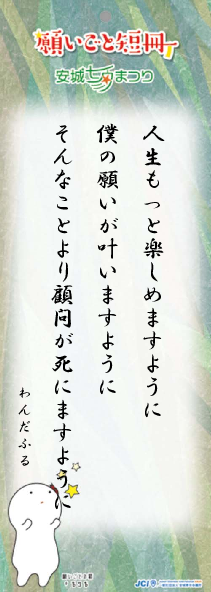 願いごと短冊
安城七夕まつり
人生もっと楽しめますように
僕の願いが叶いますように
そんなことより顧問が死にますように
わんだふる
JCI